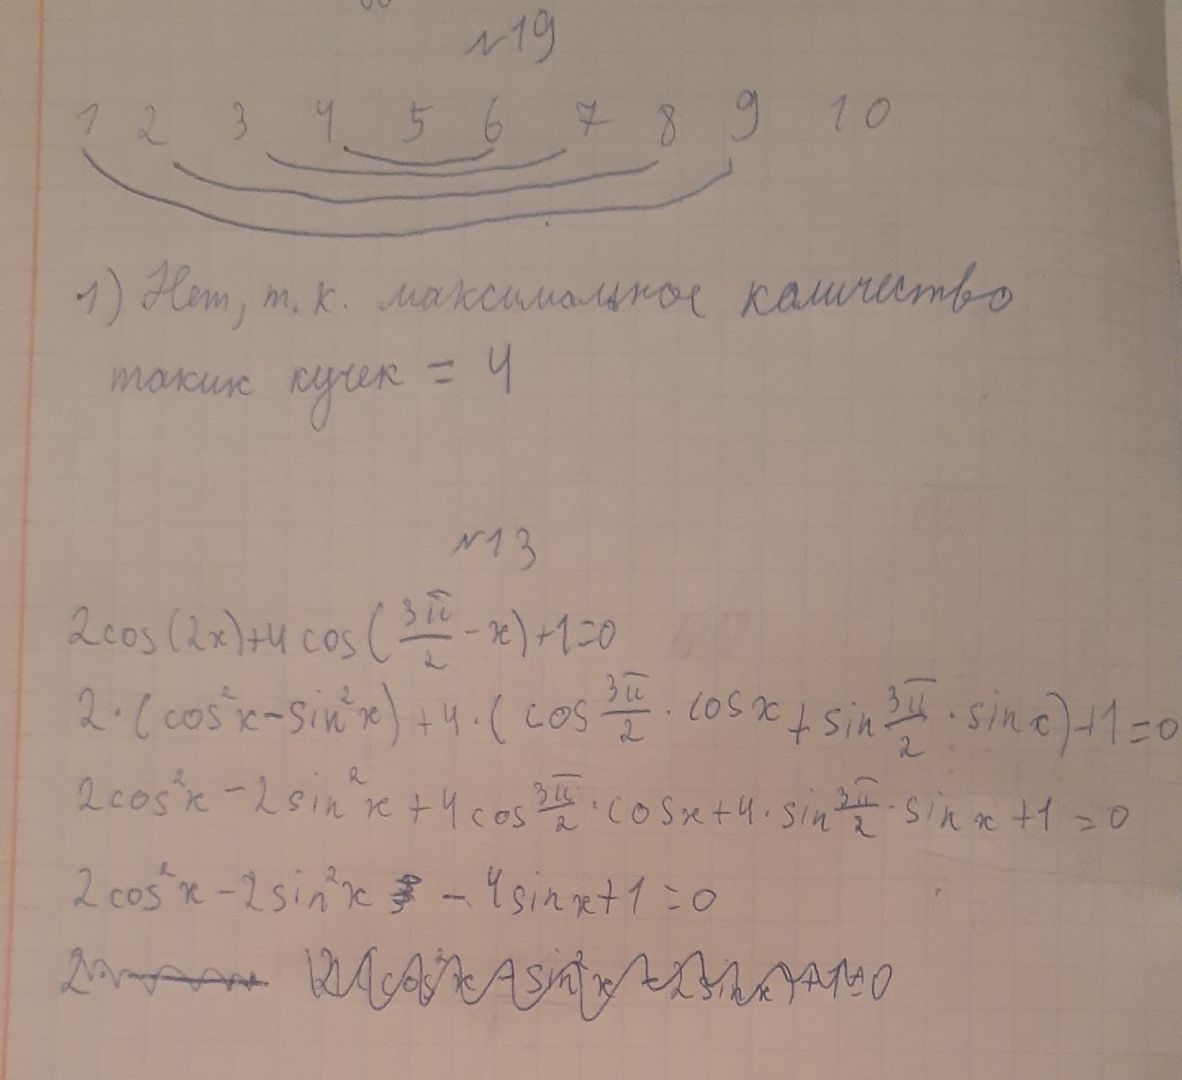 №19
1 2 3 4 5 6 7 8 9 10
1) Нет, т. к. максимальное количество
таких кучек = 4
№13
2cos(2x)+4cos(3π/2-x)+1=0
2·(cos²x-sin²x)+4·(cos 3π/2·cosx+sin 3π/2·sinx)+1=0
2cos²x-2sin²x+4cos 3π/2·cosx+4·sin 3π/2·sinx+1=0
2cos²x-2sin²x-4sinx+1=0